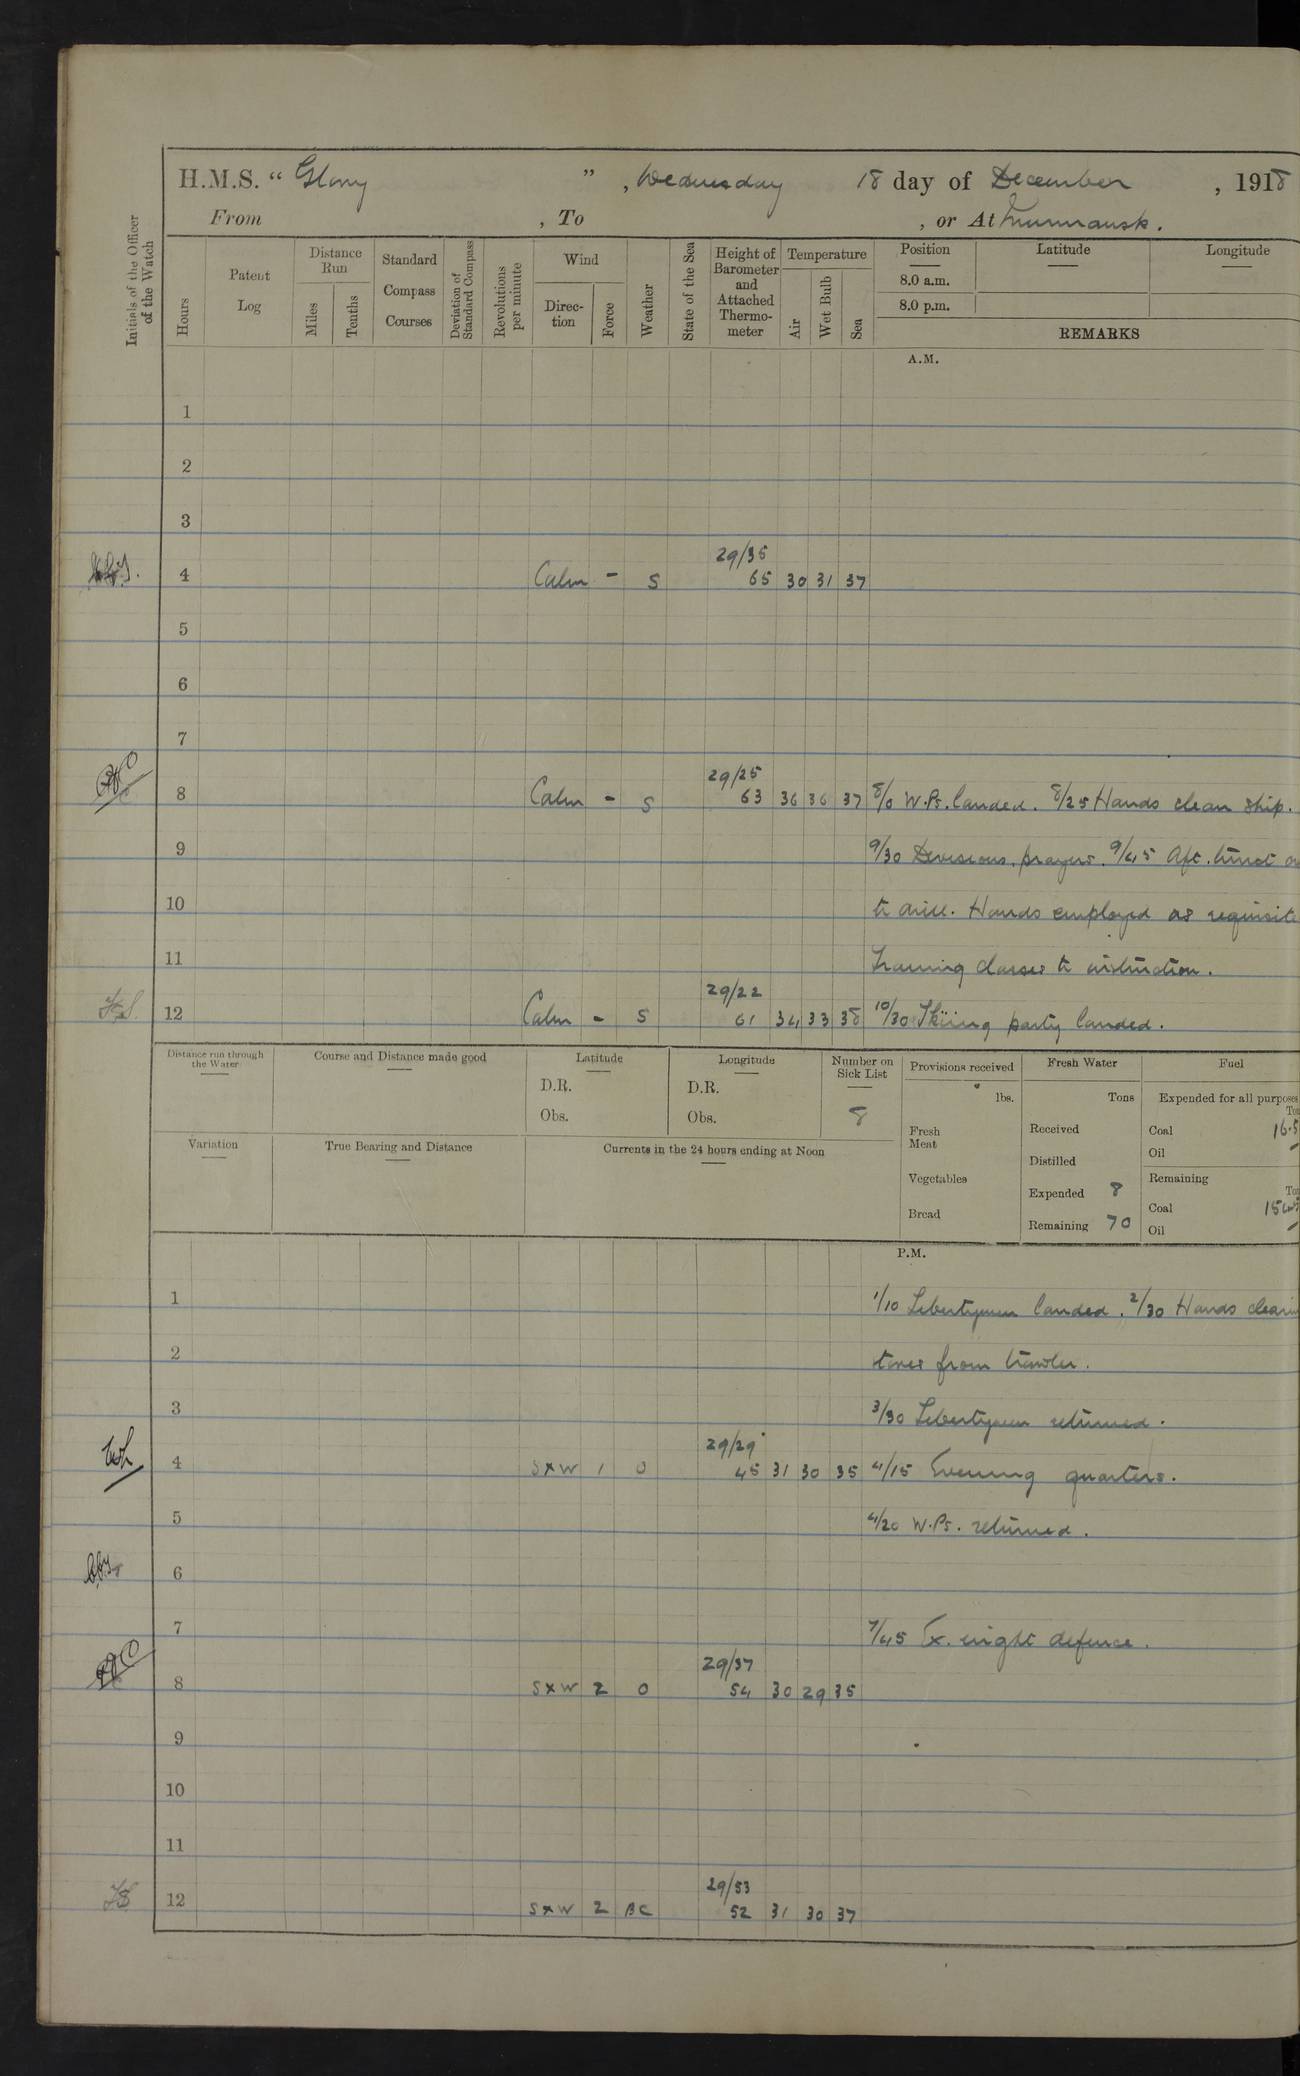 H.M.S. " Glory " , Wednesday 18 day of December , 1918
From , To , or At Murmansk.
Initials of the Officer of the Watch
Hours
Patent Log
Distance Run
Miles
Tenths
Standard Compass Courses
Deviation of Standard Compass
Revolutions per minute
Wind
Direction
Force
Weather
State of the Sea
Height of Barometer and Attached Thermometer
Temperature
Air
Wet Bulb
Sea
Position
Latitude
Longitude
8.0 a.m.
8.0 p.m.
REMARKS
A.M.
1
2
3
29/35
4 Calm - S 65 30 31 37
5
6
7
29/25
8 Calm - S 63 36 36 37 8/0 W.Ps. landed. 8/25 Hands clean ship.
9 9/30 Divisions, prayers. 9/45 Aft. turret
10 to drill. Hands employed as requisite
11 Training classes to instruction.
29/22
12 Calm - S 61 34 33 38 10/30 Skiing party landed.
Distance run through the Water
Course and Distance made good
Latitude
D.R.
Obs.
Longitude
D.R.
Obs.
Number on Sick List
8
Variation
True Bearing and Distance
Currents in the 24 hours ending at Noon
Provisions received
lbs.
Fresh Meat
Vegetables
Bread
Fresh Water
Tons
Received
Distilled
Expended 8
Remaining 70
Fuel
Expended for all purposes
Coal 16.5
Oil -
Remaining
Coal
Oil -
P.M.
1 1/10 Libertymen landed. 2/30 Hands
2 stores from trawler.
3 3/30 Libertymen returned.
29/29
4 SxW 1 O 45 31 30 35 4/15 Evening quarters.
5 4/20 W.Ps. returned.
6
7 7/45 Ex. night defence.
29/37
8 SxW 2 O 54 30 29 35
9
10
11
29/53
12 SxW 2 BC 52 31 30 37